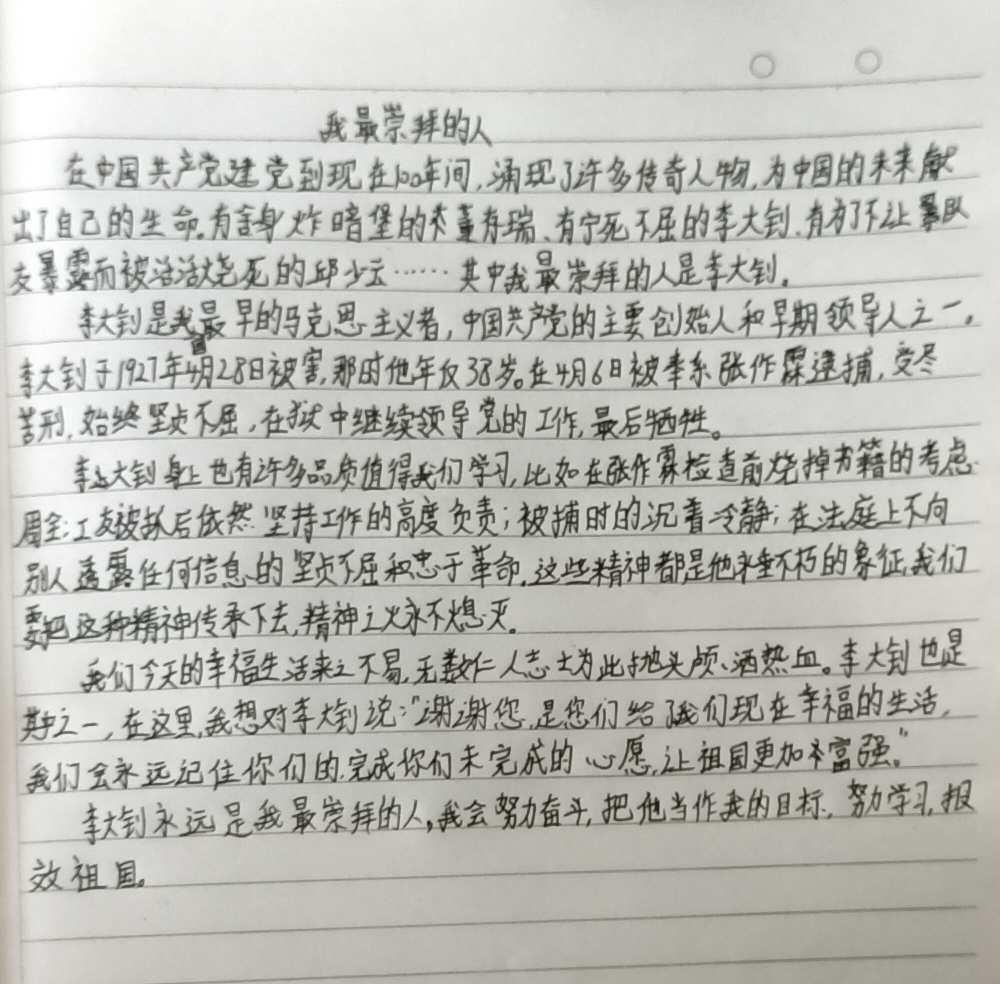 我最崇拜的人
在中国共产党建党到现在100年间,涌现了许多传奇人物,为中国的未来献
出了自己的生命。有舍身炸暗堡的董存瑞、有宁死不屈的李大钊、有为了不让队
友暴露而被活活烧死的邱少云……其中我最崇拜的人是李大钊。
李大钊是我国最早的马克思主义者,中国共产党的主要创始人和早期领导人之一。
李大钊于1927年4月28日被害,那时他年仅38岁。在4月6日被奉系张作霖逮捕,受尽
苦刑,始终坚贞不屈,在狱中继续领导党的工作,最后牺牲。
李大钊身上也有许多品质值得我们学习,比如在张作霖检查前烧掉书籍的考虑
周全;工友被抓后依然坚持工作的高度负责;被捕时的沉着冷静;在法庭上不向
别人透露任何信息的坚贞不屈和忠于革命。这些精神都是他永垂不朽的象征,我们
要把这种精神传承下去,精神之火永不熄灭。
我们今天的幸福生活来之不易,无数仁人志士为此抛头颅、洒热血。李大钊也是
其中之一,在这里,我想对李大钊说:“谢谢您,是您们给了我们现在幸福的生活,
我们会永远记住你们的,完成你们未完成的心愿,让祖国更加富强。”
李大钊永远是我最崇拜的人,我会努力奋斗,把他当作我的目标,努力学习,报
效祖国。